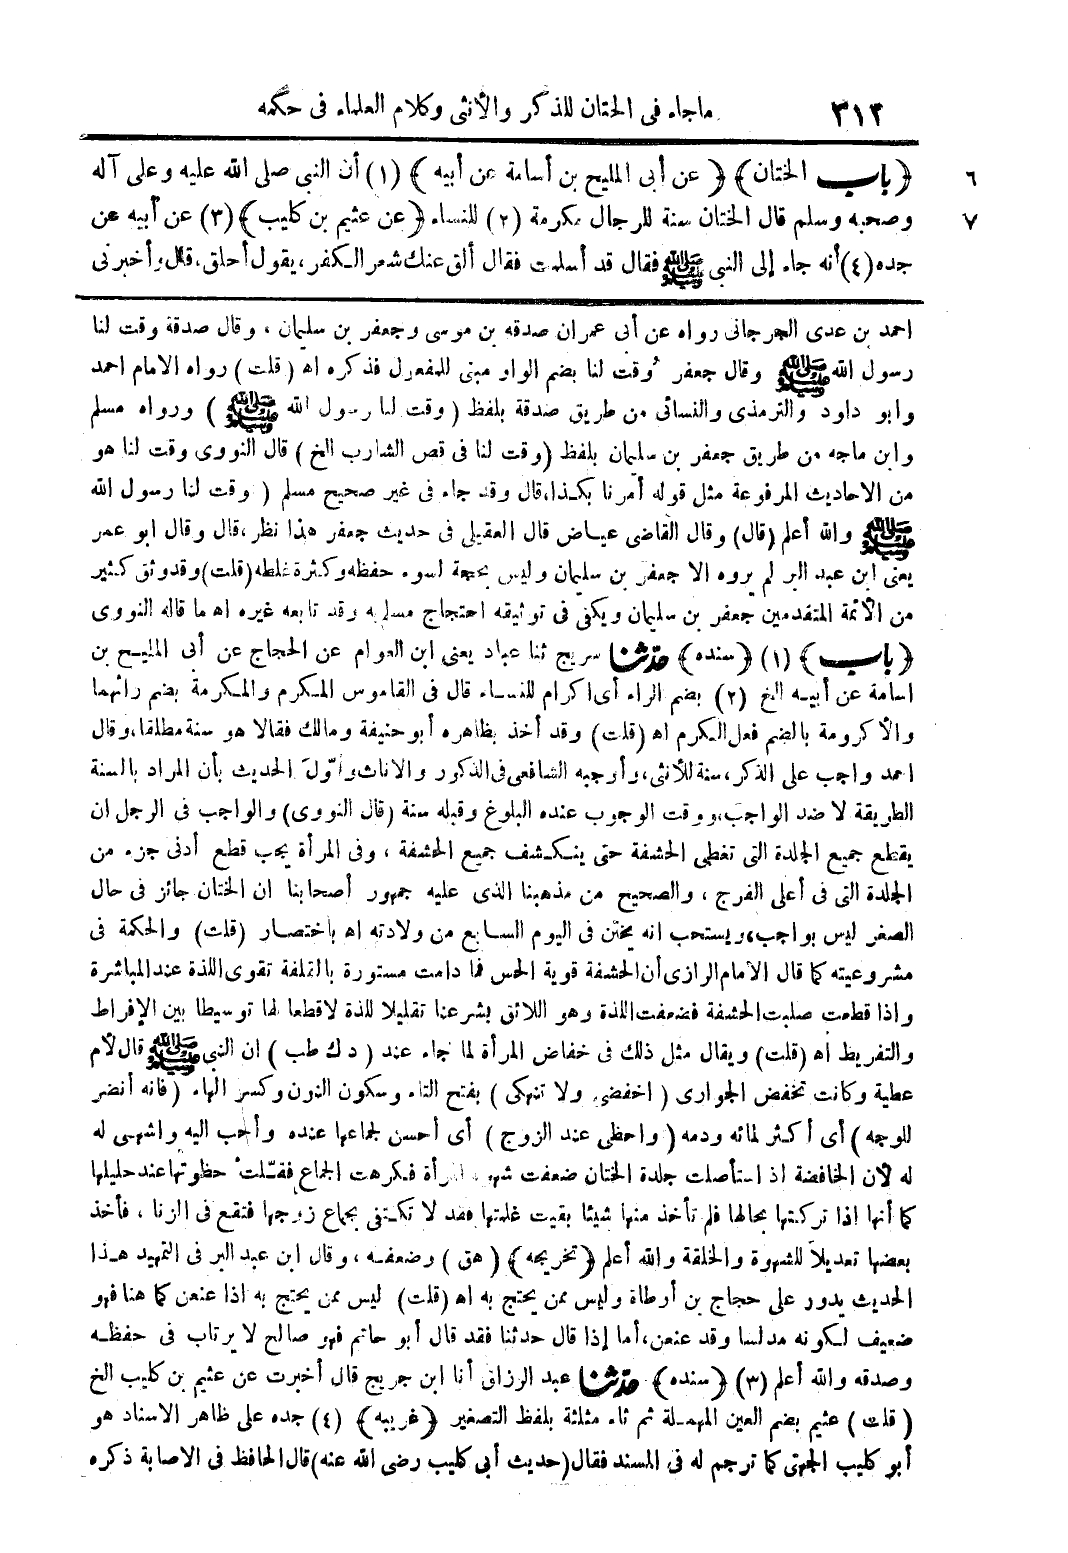 ٣١٢ ماجاء فى الختان للذكر والأنثى وكلام العلماء فى حكمه
٦ ﴿باب الختان﴾ ﴿ عن أبى المليح بن أسامة عن أبيه ﴾ (١) أن النبى صلى الله عليه وعلى آله
٧ وصحبه وسلم قال الختان سنة للرجال مكرمة (٢) للنساء ﴿عن عثيم بن كليب﴾(٣) عن أبيه عن
جده(٤)أنه جاء إلى النبى ﷺ فقال قد أسلمت فقال ألق عنك شعر الكفر،يقول أحلق،قال وأخبرنى
احمد بن عدى الجرجانى رواه عن أبى عمران صدقه بن موسى وجعفر بن سليمان ، وقال صدقة وقت لنا
رسول الله ﷺ وقال جعفر ُوقت لنا بضم الواو مبنى للمفعول فذكره اه (قلت) رواه الامام احمد
وابو داود والترمذى والنسائى من طريق صدقة بلفظ (وقت لنا رسول الله ﷺ ) ورواه مسلم
وابن ماجه من طريق جعفر بن سليمان بلفظ (وقت لنا فى قص الشارب الخ) قال النووى وقت لنا هو
من الاحاديث المرفوعة مثل قوله أمرنا بكذا،قال وقد جاء فى غير صحيح مسلم ( وقت لنا رسول الله
ﷺ والله أعلم (قال) وقال القاضى عياض قال العقيلى فى حديث جعفر هذا نظر،قال وقال ابو عمر
يعنى ابن عبد البر لم يروه الا جعفر بن سليمان وليس بحجة لسوء حفظه وكثرة غلطه(قلت)وقد وثق كثير
من الأئمة المتقدمين جعفر بن سليمان ويكفى فى توثيقه احتجاج مسلم به وقد تابعه غيره اه ما قاله النووى
﴿باب﴾ (١) ﴿سنده﴾ حدثنا سريج ثنا عباد يعنى ابن العوام عن الحجاج عن أبى المليح بن
اسامة عن أبيه الخ (٢) بضم الراء أى اكرام للنساء قال فى القاموس المكرم والمكرمة بضم رائهما
والأكرومة بالضم فعل الكرم اه (قلت) وقد أخذ بظاهره أبو حنيفة ومالك فقالا هو سنة مطلقا،وقال
احمد واجب على الذكر،سنة للأنثى،وأوجبه الشافعى فى الذكور والاناث وأوّل الحديث بأن المراد بالسنة
الطريقة لا ضد الواجب،ووقت الوجوب عنده البلوغ وقبله سنة (قال النووى) والواجب فى الرجل ان
يقطع جميع الجلدة التى تغطى الحشفة حتى ينكشف جميع الحشفة ، وفى المرأة يجب قطع أدنى جزء من
الجلدة التى فى أعلى الفرج ، والصحيح من مذهبنا الذى عليه جمهور أصحابنا ان الختان جائز فى حال
الصغر ليس بواجب،ويستحب انه يختن فى اليوم السابع من ولادته اه باختصار (قلت) والحكمة فى
مشروعيته كما قال الامام الرازى أن الحشفة قوية الحس فما دامت مستورة بالقلفة تقوى اللذة عند المباشرة
واذا قطعت صلبت الحشفة فضعفت اللذة وهو اللائق بشرعنا تقليلا للذة لاقطعا لها توسيطا بين الإفراط
والتفريط اه (قلت) ويقال مثل ذلك فى خفاض المرأة لما جاء عند ( د ك طب ) ان النبى ﷺ قال لأم
عطية وكانت تخفض الجوارى ( اخفضى ولا تنهكى ) بفتح التاء وسكون النون وكسر الهاء ( فانه أنضر
للوجه ) أى أكثر لمائه ودمه ( واحظى عند الزوج ) أى أحسن لجماعها عنده وأحب اليه واشهى له
له لأن الخافضة اذ استأصلت جلدة الختان ضعفت شهوة المرأة فكرهت الجماع فقـلّت حظوتها عند حليلها
كما أنها اذا تركتها بحالها فلم تأخذ منها شيئا بقيت غلمتها فقد لا تكتفى بجماع زوجها فتقع فى الزنا ، فأخذ
بعضها تعديلا للشهوة والخلقة والله أعلم ﴿تخريجه﴾ (هق) وضعفه ، وقال ابن عبد البر فى التمهيد هذا
الحديث يدور على حجاج بن أرطاة وليس ممن يحتج به اه (قلت) ليس ممن يحتج به اذا عنعن كما هنا فهو
ضعيف لكونه مدلسا وقد عنعن،أما إذا قال حدثنا فقد قال أبو حاتم فهو صالح لا يرتاب فى حفظه
وصدقه والله أعلم (٣) ﴿سنده﴾ حدثنا عبد الرزاق أنا ابن جريج قال أخبرت عن عثيم بن كليب الخ
( قلت ) عثيم بضم العين المهملة ثم ثاء مثلثة بلفظ التصغير ﴿غريبه﴾ (٤) جده على ظاهر الاسناد هو
أبو كليب الجهنى كما ترجم له فى المسند فقال(حديث أبى كليب رضى الله عنه)قال الحافظ فى الاصابة ذكره